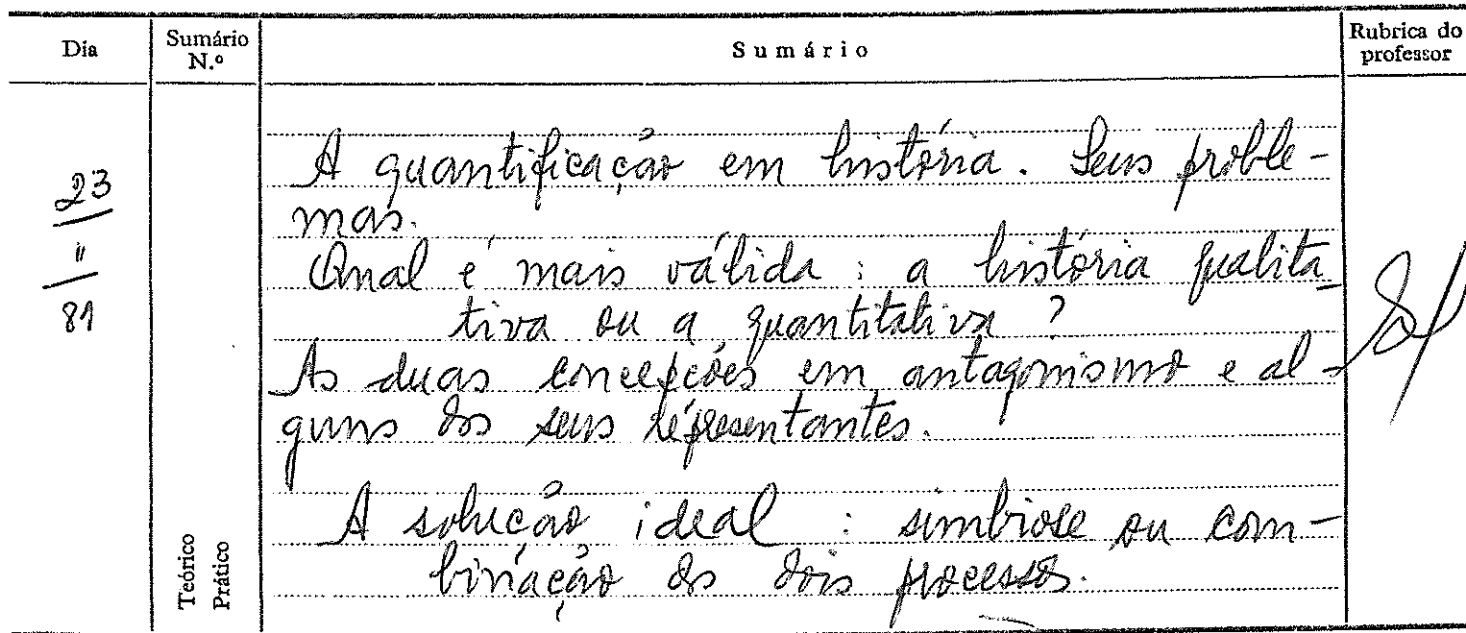 Dia
Sumário N.º
Sumário
Rubrica do professor
23
11
81
A quantificação em história. Seus proble-
mas.
Qual é mais válida: a história qualita-
tiva ou a quantitativa?
As duas concepções em antagonismo e al-
guns dos seus representantes.
A solução ideal: simbiose ou com-
binação dos dois processos.
Teórico
Prático